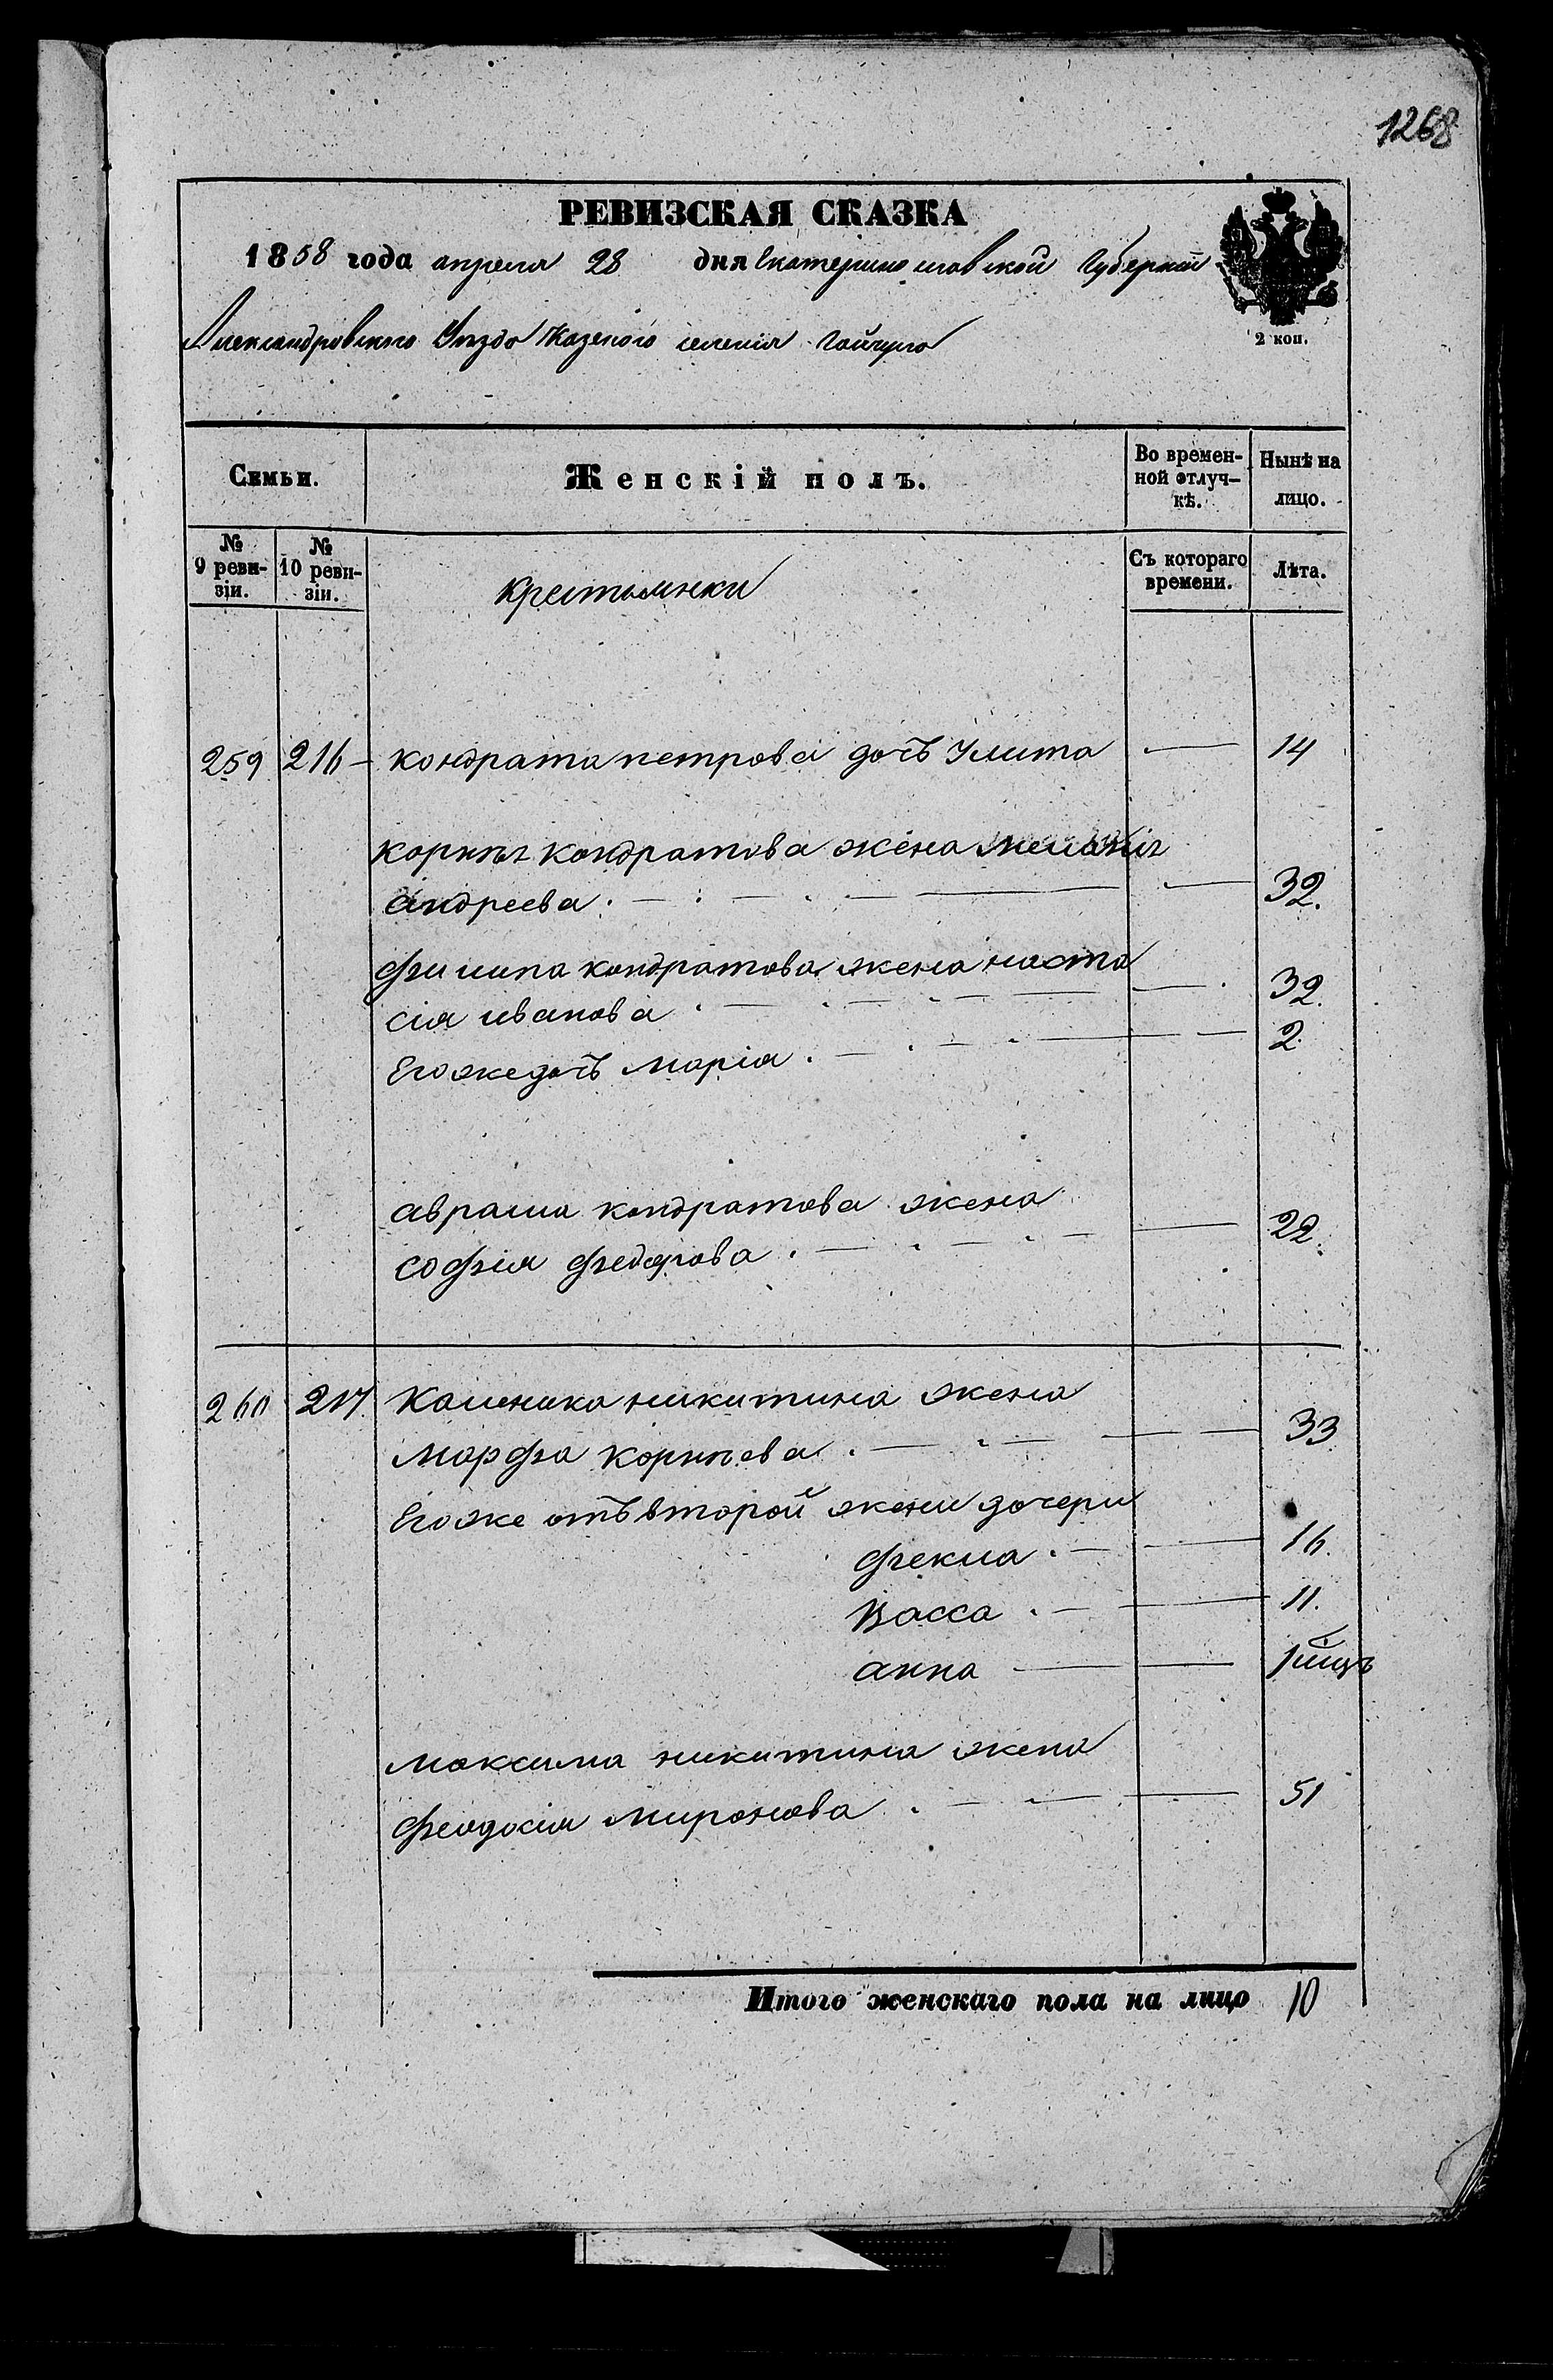 1268
РЕВИЗСКАЯ СКАЗКА
1858 года апреля 28 дня Екатеринославской Губерніи
2 коп.
Александровского Уѣзда Казеного селения Гайчула
Семьи. Женскій полъ. Во времен- Нынѣ на
ной отлуч- лицо.
кѣ.
№ 9 реви-зіи. № 10 реви-зіи. крестьянки Съ котораго времени. Лѣта.
259 216 – кондрата петрова дочъ Улита — 14
корнѣя кондратова жена меланія
андреева . — 32.
филипа кондратова жена наста
сія иванова . — 32.
Егоже дочъ марія . — 2
аврама кондратова жена
софія федорова . — 22.
260 217 Каленика никитина жена
марфа корнѣева . — 33
Егоже отъ второй жени дочери
фекла . — 16.
Васса . — 11.
анна — 1 мцъ
максима никитина жена
феодосия миронова . — 51
Итого женскаго пола на лицо 10